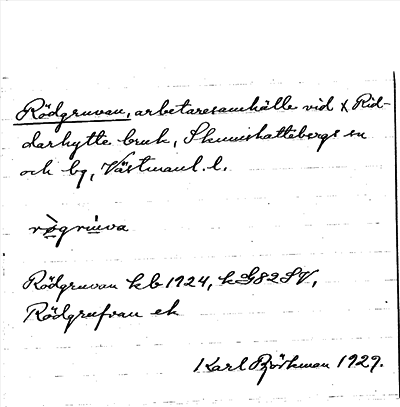 Rödgruvan, arbetaresamhälle vid x Rid-
darhytte bruk, Skinnskattebergs sn
och bg, Västmanl. l.
rø̀gru̇va
Rödgruvan kb 1924, kG82SV,
Rödgrufvan ek
Karl Björkman 1929.